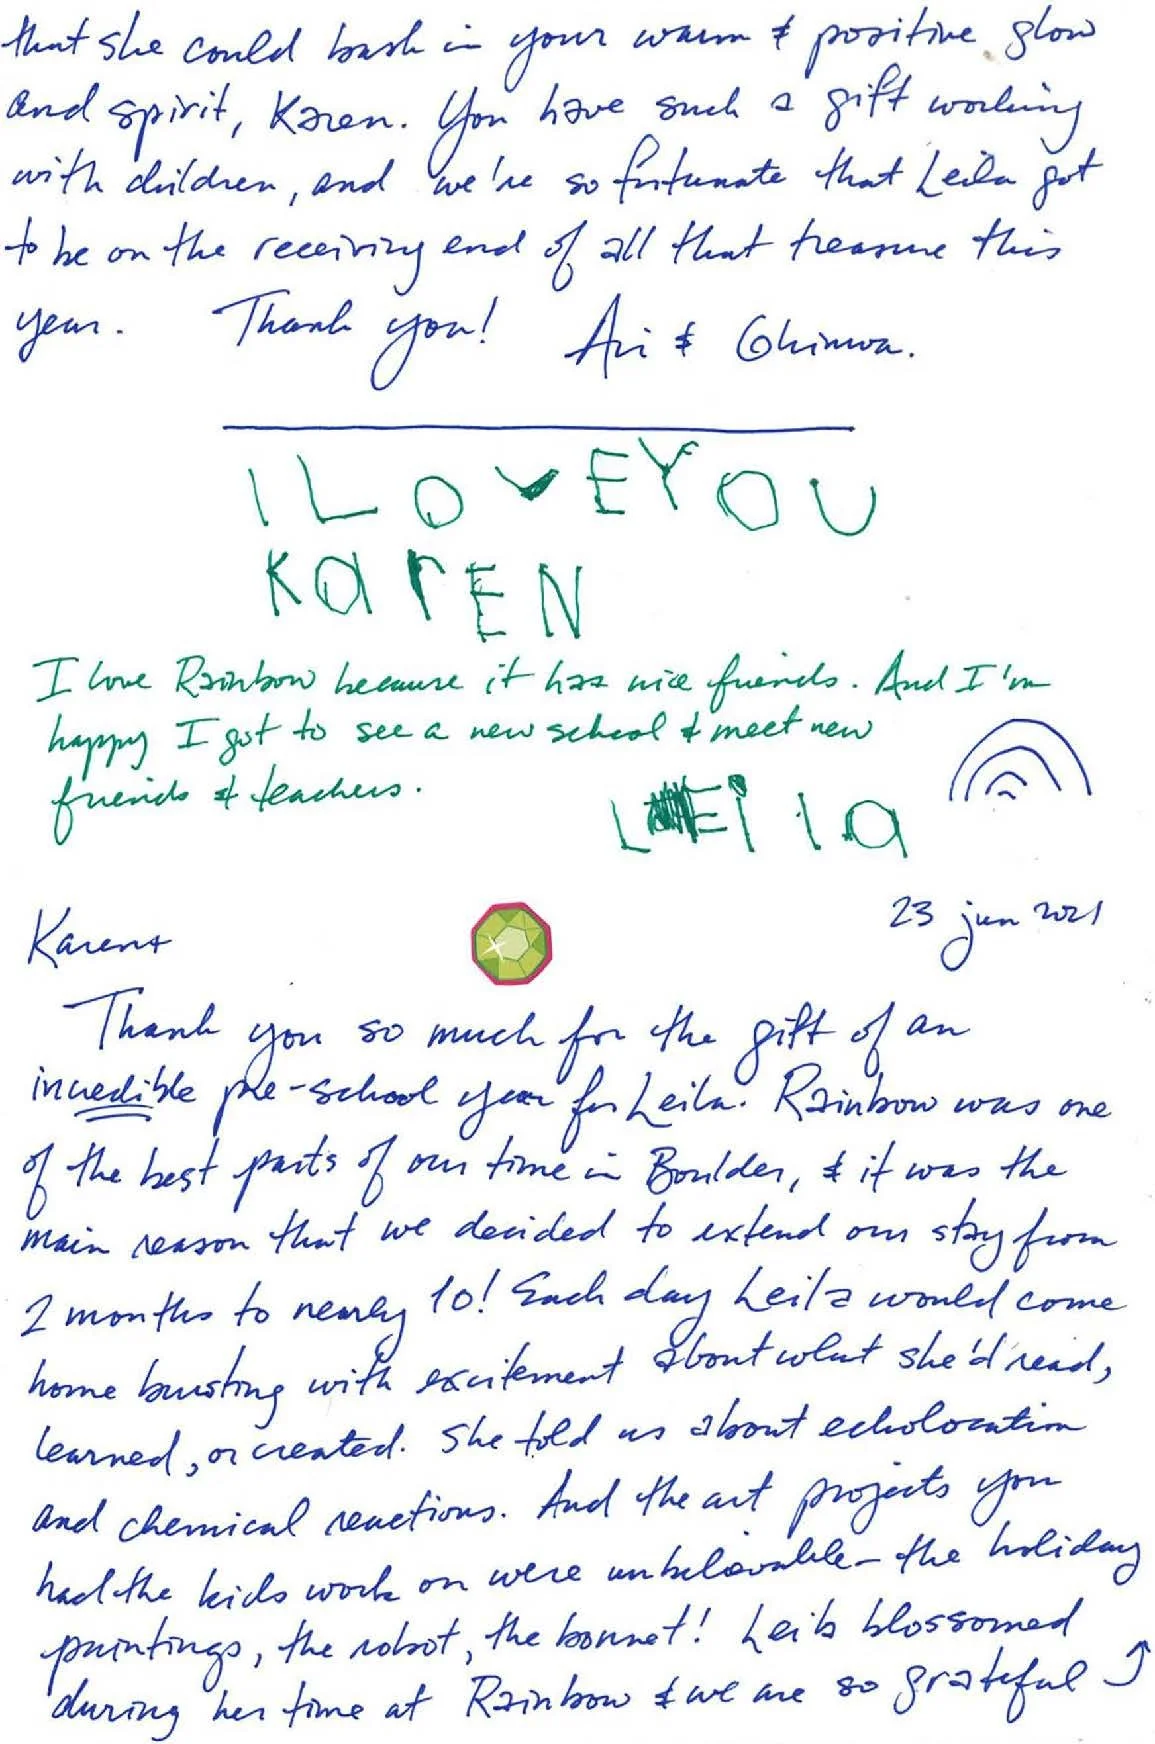 that she could bask in your warm & positive glow
and spirit, Karen. You have such a gift working
with children, and we're so fortunate that Leila got
to be on the receiving end of all that treasure this
year. Thank you! Ari & Ghinwa.
I LOVE YOU
KarEN
I love Rainbow because it has nice friends. And I'm
happy I got to see a new school & meet new
friends & teachers.
LEila
23 jun 2021
Karen
Thank you so much for the gift of an
incredible pre-school year for Leila. Rainbow was one
of the best parts of our time in Boulder, & it was the
main reason that we decided to extend our stay from
2 months to nearly 10! Each day Leila would come
home bursting with excitement about what she'd read,
learned, or created. She told us about echolocation
and chemical reactions. And the art projects you
had the kids work on were unbelievable – the holiday
paintings, the robot, the bonnet! Leila blossomed
during her time at Rainbow & we are so grateful